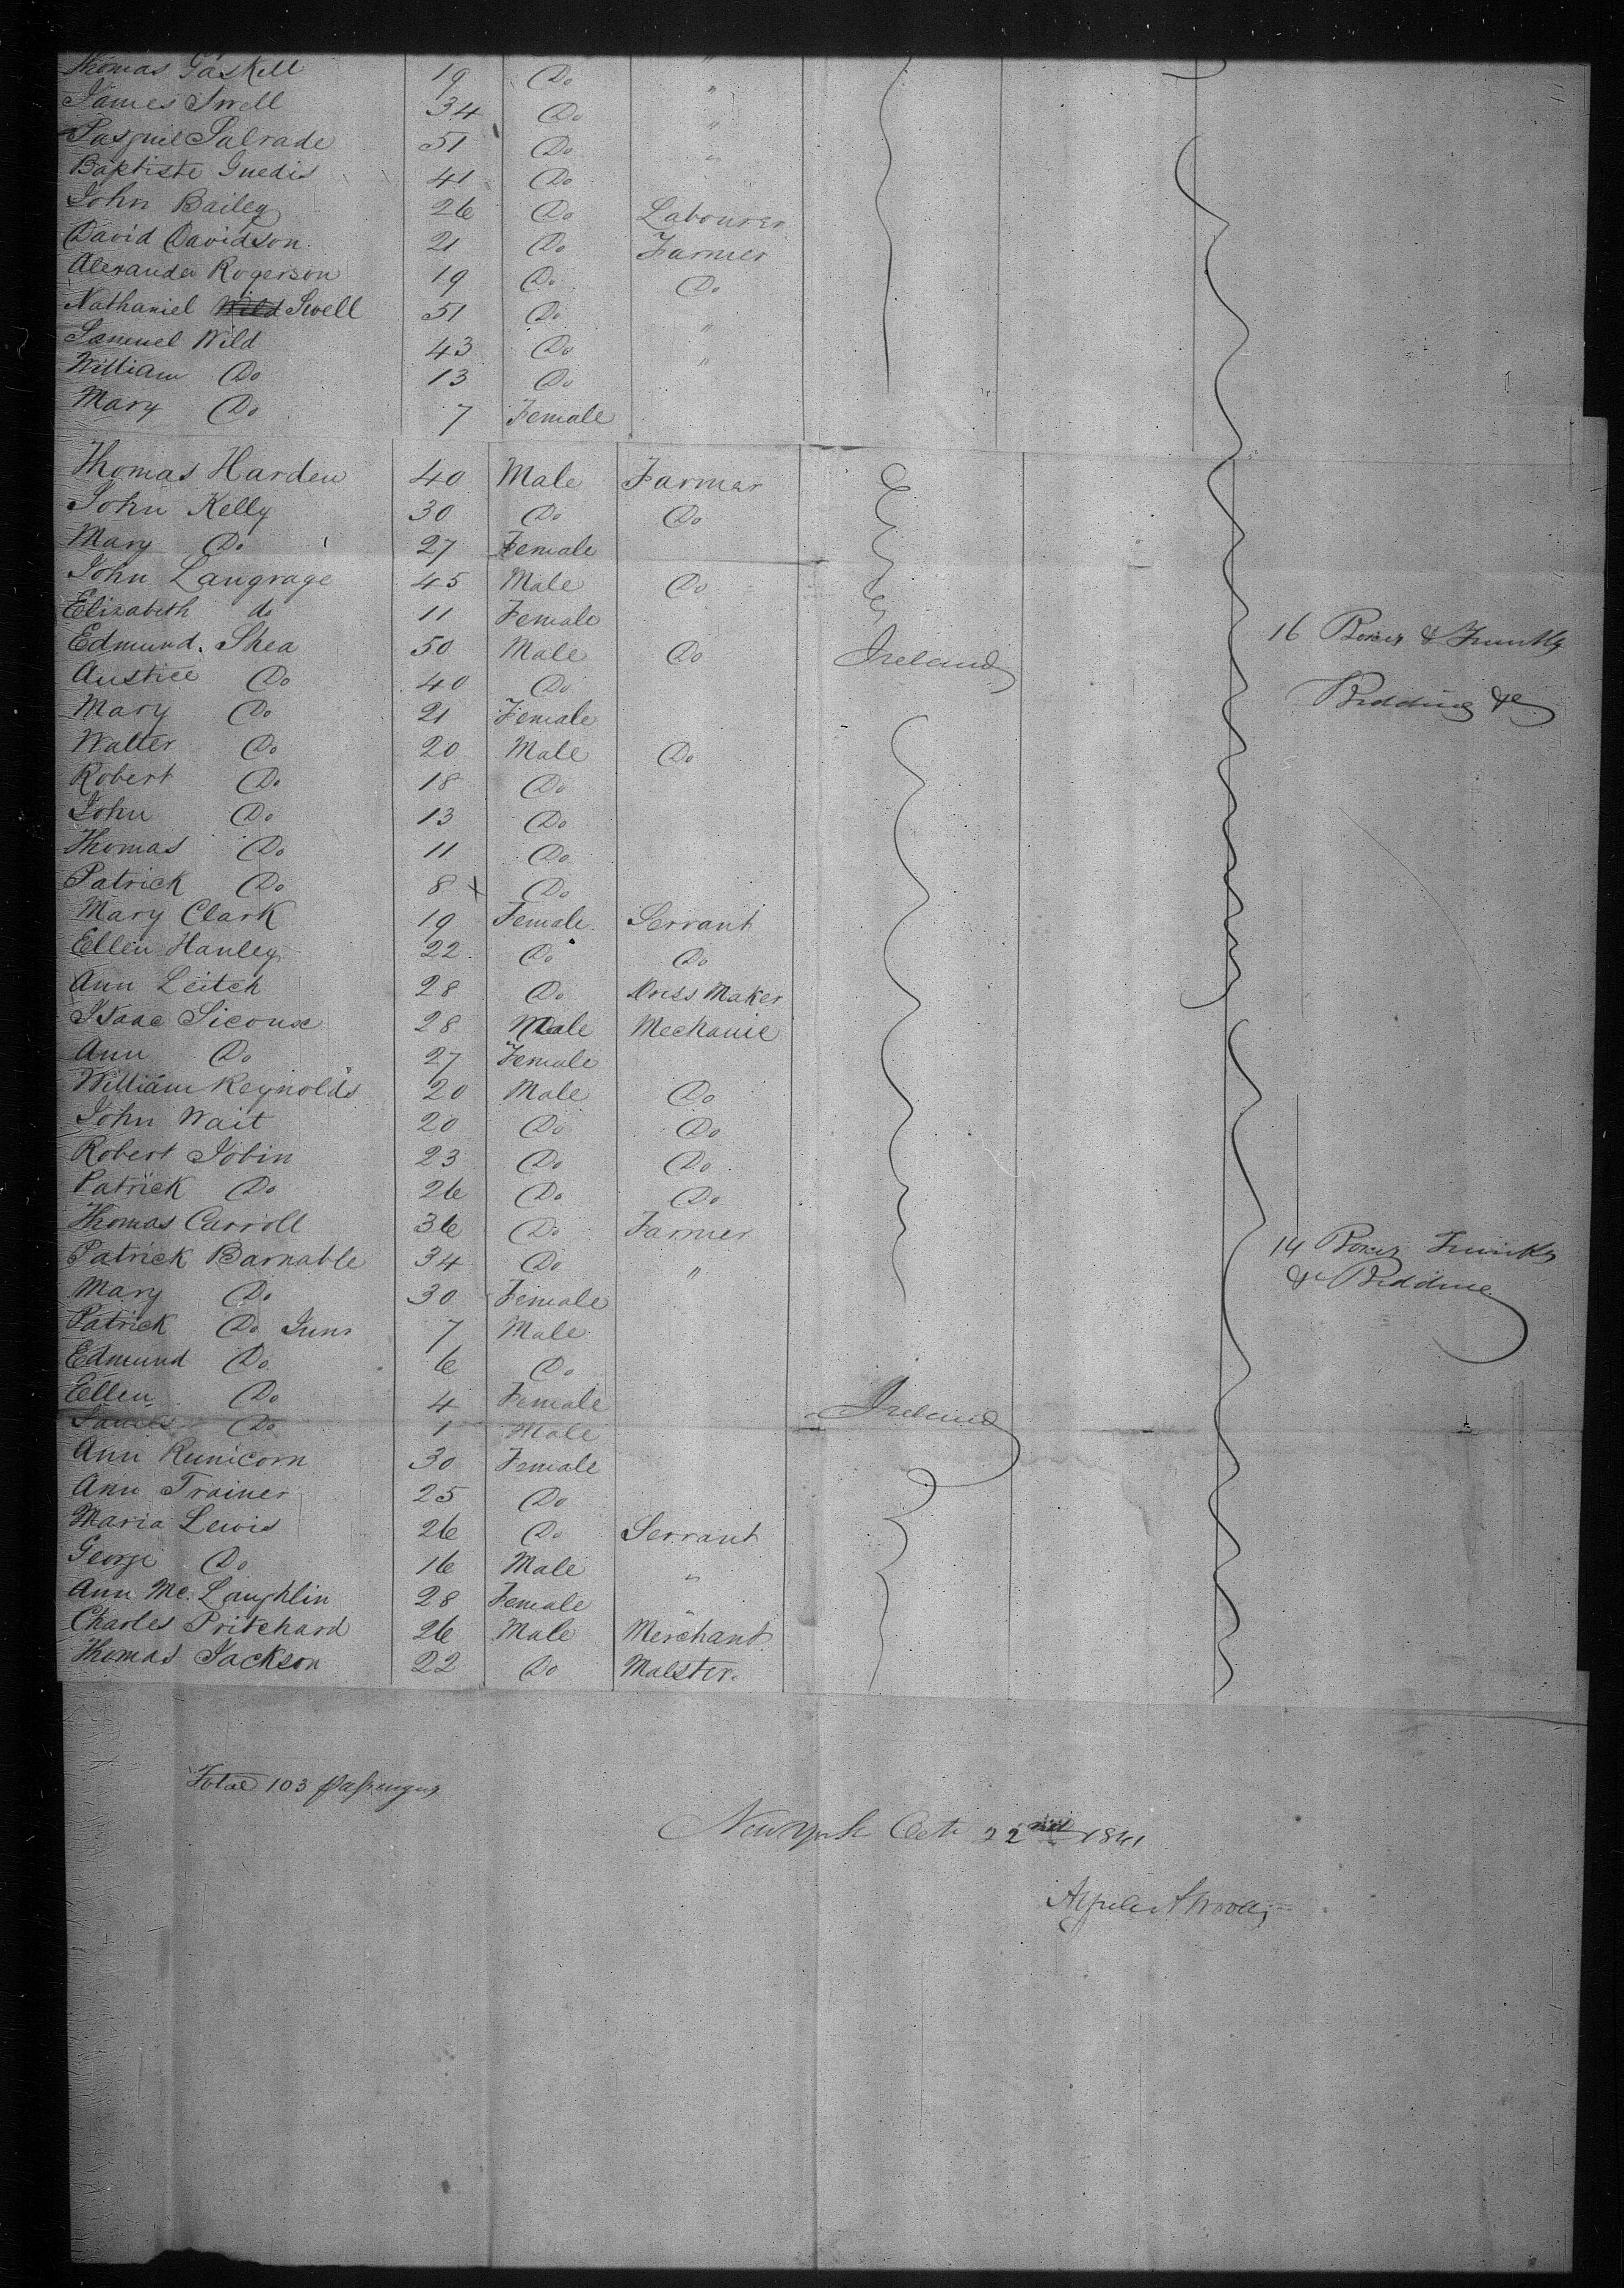 Thomas Gaskell 19 Do "
James Swell 34 Do "
Pasquel Salrade 51 Do "
Baptiste Guedis 41 Do
John Bailey 26 Do Labourer
David Davidson 21 Do Farmer
Alexander Rogerson 19 Do Do
Nathaniel Wild Swell 51 Do "
Samuel Wild 43 Do "
William Do 13 Do
Mary Do 7 Female
Thomas Harden 40 Male Farmer
John Kelly 30 Do Do
Mary Do 27 Female
John Langrage 45 Male Do
Elizabeth do 11 Female
16 Boxes & Trunks
Edmund Shea 50 Male Do Ireland
Austice Do 40 Do
Bedding &c
Mary Do 21 Female
Walter Do 20 Male Do
Robert Do 18 Do
John Do 13 Do
Thomas Do 11 Do
Patrick Do 8 x Do
Mary Clark 19 Female Servant
Ellen Hanley 22 Do Do
Ann Leitch 28 Do Dress Maker
Isaac Siconse 28 Male Mechanic
Ann Do 27 Female
William Reynolds 20 Male Do
John Wait 20 Do Do
Robert Jobin 23 Do Do
Patrick Do 26 Do Do
Thomas Carroll 36 Do Farmer
14 Boxes Trunks
Patrick Barnable 34 Do "
& Bedding
Mary Do 30 Female
Patrick Do Junr 7 Male
Edmund Do 6 Do
Ellen Do 4 Female Ireland
James Do 1 Male
Ann Runicorn 30 Female
Ann Trainer 25 Do
Maria Lewis 26 Do Servant
George Do 16 Male "
Ann Mc Laughlin 28 Female "
Charles Pritchard 26 Male Merchant
Thomas Jackson 22 Do Malster.
Total 103 passengers
New York Oct 22nd 1841